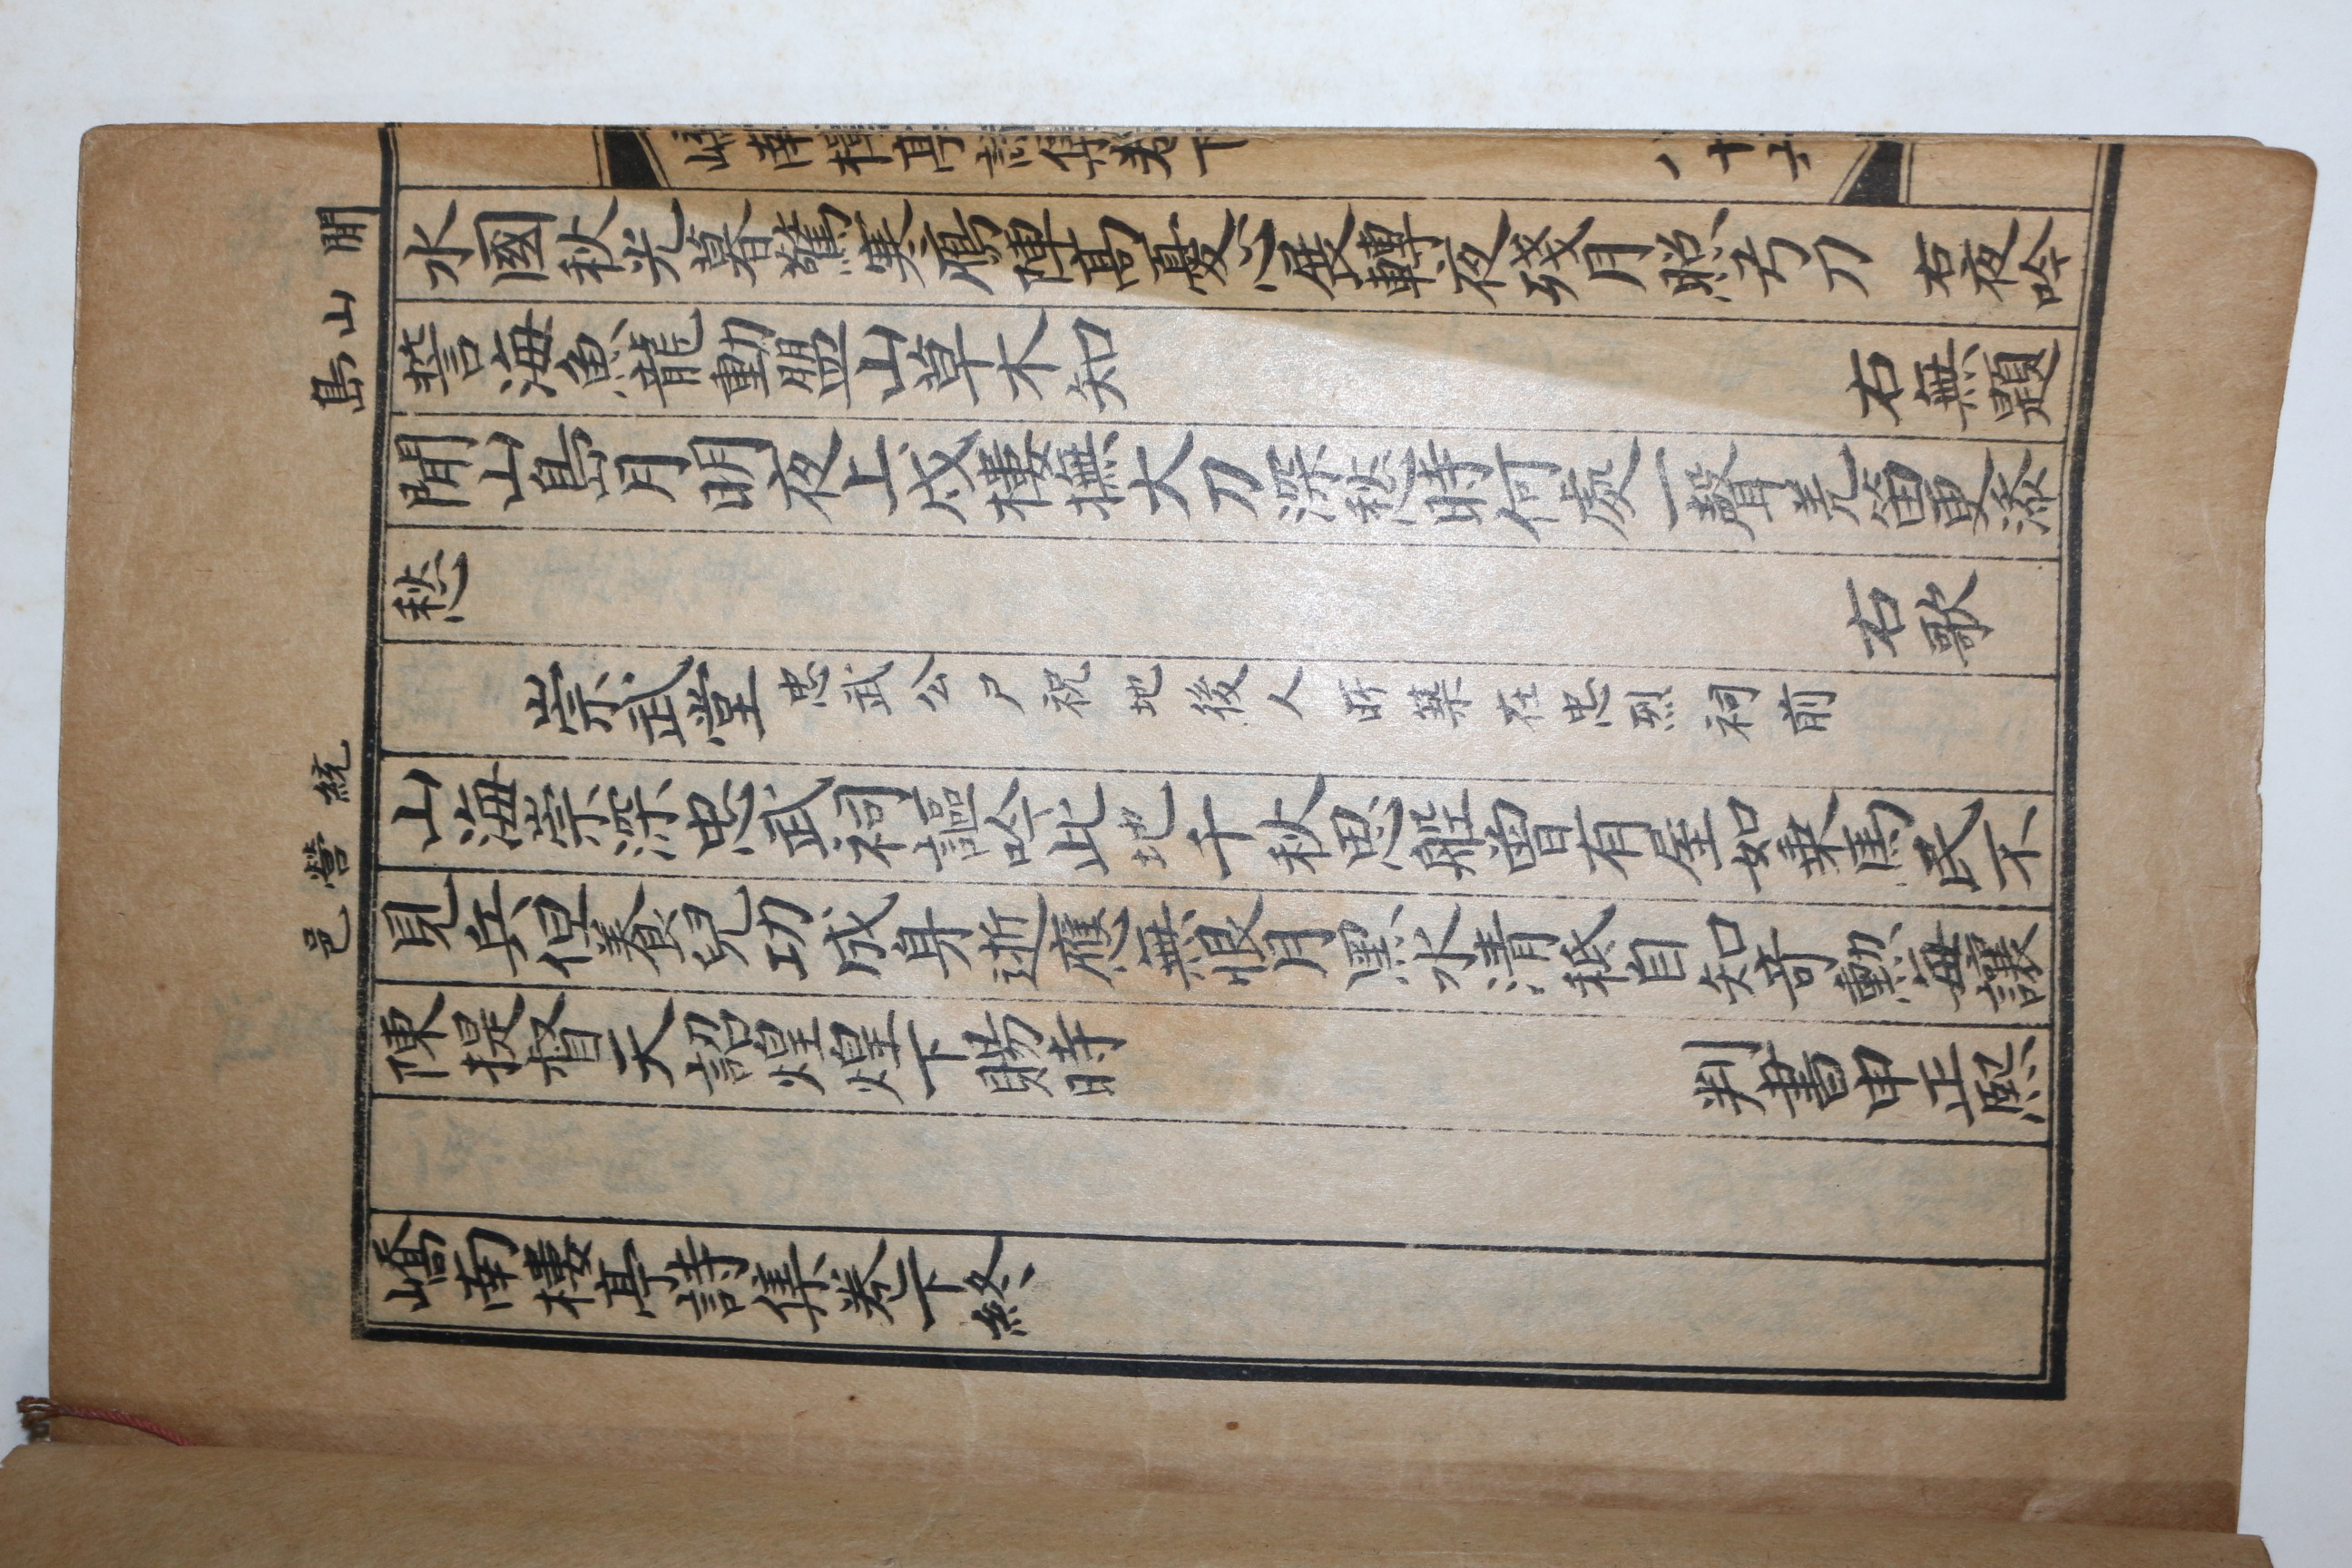 閒山島
統營邑
嶠南樓亭詩集卷下
八十六
水國秋光暮驚寒鴈陣高憂心展轉夜殘月照弓刀 右夜吟
誓海魚龍動盟山草木知 右無題
閒山島月明夜上戍樓撫大刀深愁時何處一聲羌笛更添
愁 右歌
崇武堂 忠武公尸祝地後人所築在忠烈祠前
山海崇深忠武祠謳吟此地千秋思船曾有屋如乗馬民不
見兵但養兒功成身逝應無恨月黑水清秪自知竒勲每讓
陳提督天詔煌煌下賜時 判書申正熙
嶠南樓亭詩集卷下終